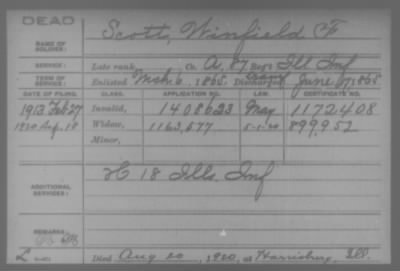 DEAD
Scott, Winfield F
NAME OF SOLDIER:
SERVICE: Late rank, Co. A, 87 Reg't Ill Inf
TERM OF SERVICE: Enlisted Mch 6, 1865. Discharged June 1865
DATE OF FILING. CLASS. APPLICATION NO. LAW. CERTIFICATE NO.
1913 Feb 27 Invalid, 1408623 May 1172408
1920 Sep. 18 Widow, 1163,577 5-1-20 899,952
Minor,
ADDITIONAL SERVICES: H 18 Ills. Inf
REMARKS:
L Died Aug 20, 1920, at Harrisburg, Ill.